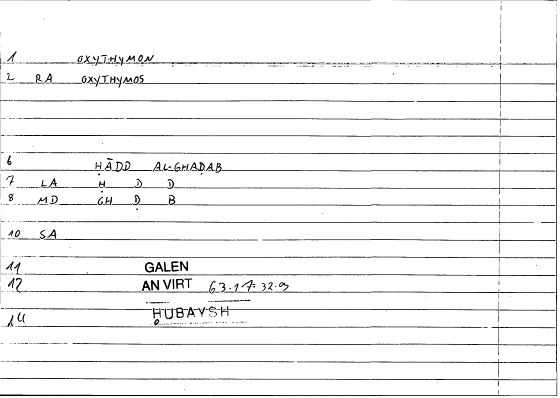 1 OXYTHYMON
2 RA OXYTHYMOS
6 ḤĀDD AL-GHAḌAB
7 LA Ḥ D D
8 MD GH Ḍ B
10 SA
11 GALEN
12 AN VIRT 63.17-32.9
14 ḤUBAYSH